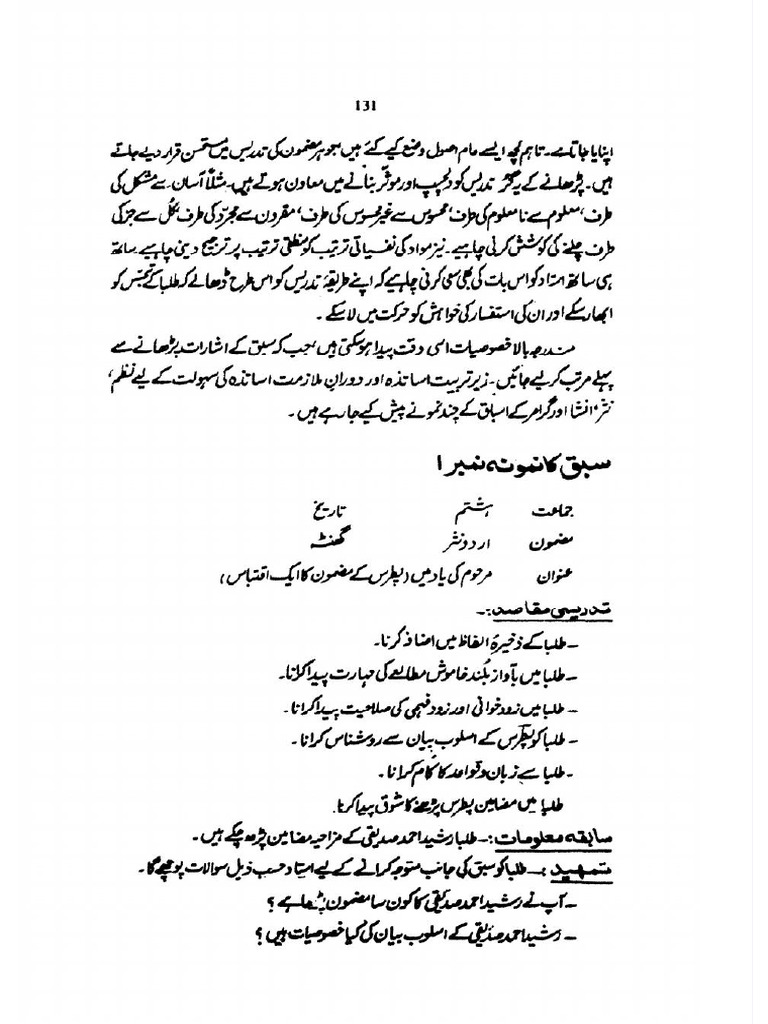 131
اپنایا جاتا ہے۔ تاہم کچھ ایسے عام اصول وضع کیے گئے ہیں جو ہر مضمون کی تدریس میں مستحسن قرار دیے جاتے
ہیں۔ پڑھانے کے یہ گُر تدریس کو دلچسپ اور موثر بنانے میں معاون ہوتے ہیں۔ مثلاً آسان سے مشکل کی
طرف، معلوم سے نامعلوم کی طرف، محسوس سے غیر محسوس کی طرف، مقرون سے مجرّد کی طرف، کُل سے جز کی
طرف چلنے کی کوشش کرنی چاہیے۔ نیز مواد کی نفسیاتی ترتیب کو منطقی ترتیب پر ترجیح دینی چاہیے۔ ساتھ
ہی ساتھ استاد کو اس بات کی بھی سعی کرنی چاہیے کہ اپنے طریقۂ تدریس کو اس طرح ڈھالے کہ طلبا کے تجسّس کو
ابھار سکے اور ان کی استفسار کی خواہش کو حرکت میں لا سکے۔
مندرجہ بالا خصوصیات اسی وقت پیدا ہو سکتی ہیں، جب کہ سبق کے اشارات پڑھانے سے
پہلے مرتب کر لیے جائیں۔ زیر تربیت اساتذہ اور دورانِ ملازمت اساتذہ کی سہولت کے لیے نظم،
نثر، انشا اور گرامر کے اسباق کے چند نمونے پیش کیے جا رہے ہیں۔
سبق کا نمونہ نمبر ۱
جماعت ہشتم تاریخ
مضمون اردو نثر گھنٹہ
عنوان مرحوم کی یاد میں (پطرس کے مضمون کا ایک اقتباس)
تدریسی مقاصد:۔
– طلبا کے ذخیرۂ الفاظ میں اضافہ کرنا۔
– طلبا میں بآواز بلند خاموش مطالعے کی مہارت پیدا کرانا۔
– طلبا میں زود خوانی اور زود فہمی کی صلاحیت پیدا کرانا۔
– طلبا کو پطرس کے اسلوب بیان سے روشناس کرانا۔
– طلبا سے زبان و قواعد کا کام کرانا۔
طلبا میں مضامین پطرس پڑھنے کا شوق پیدا کرنا۔
سابقہ معلومات:۔ طلبا رشید احمد صدیقی کے مزاحیہ مضامین پڑھ چکے ہیں۔
تمہید:۔ طلبا کو سبق کی جانب متوجہ کرانے کے لیے استاد حسب ذیل سوالات پوچھے گا۔
– آپ نے رشید احمد صدیقی کا کون سا مضمون پڑھا ہے؟
– رشید احمد صدیقی کے اسلوب بیان کی کیا خصوصیات ہیں؟